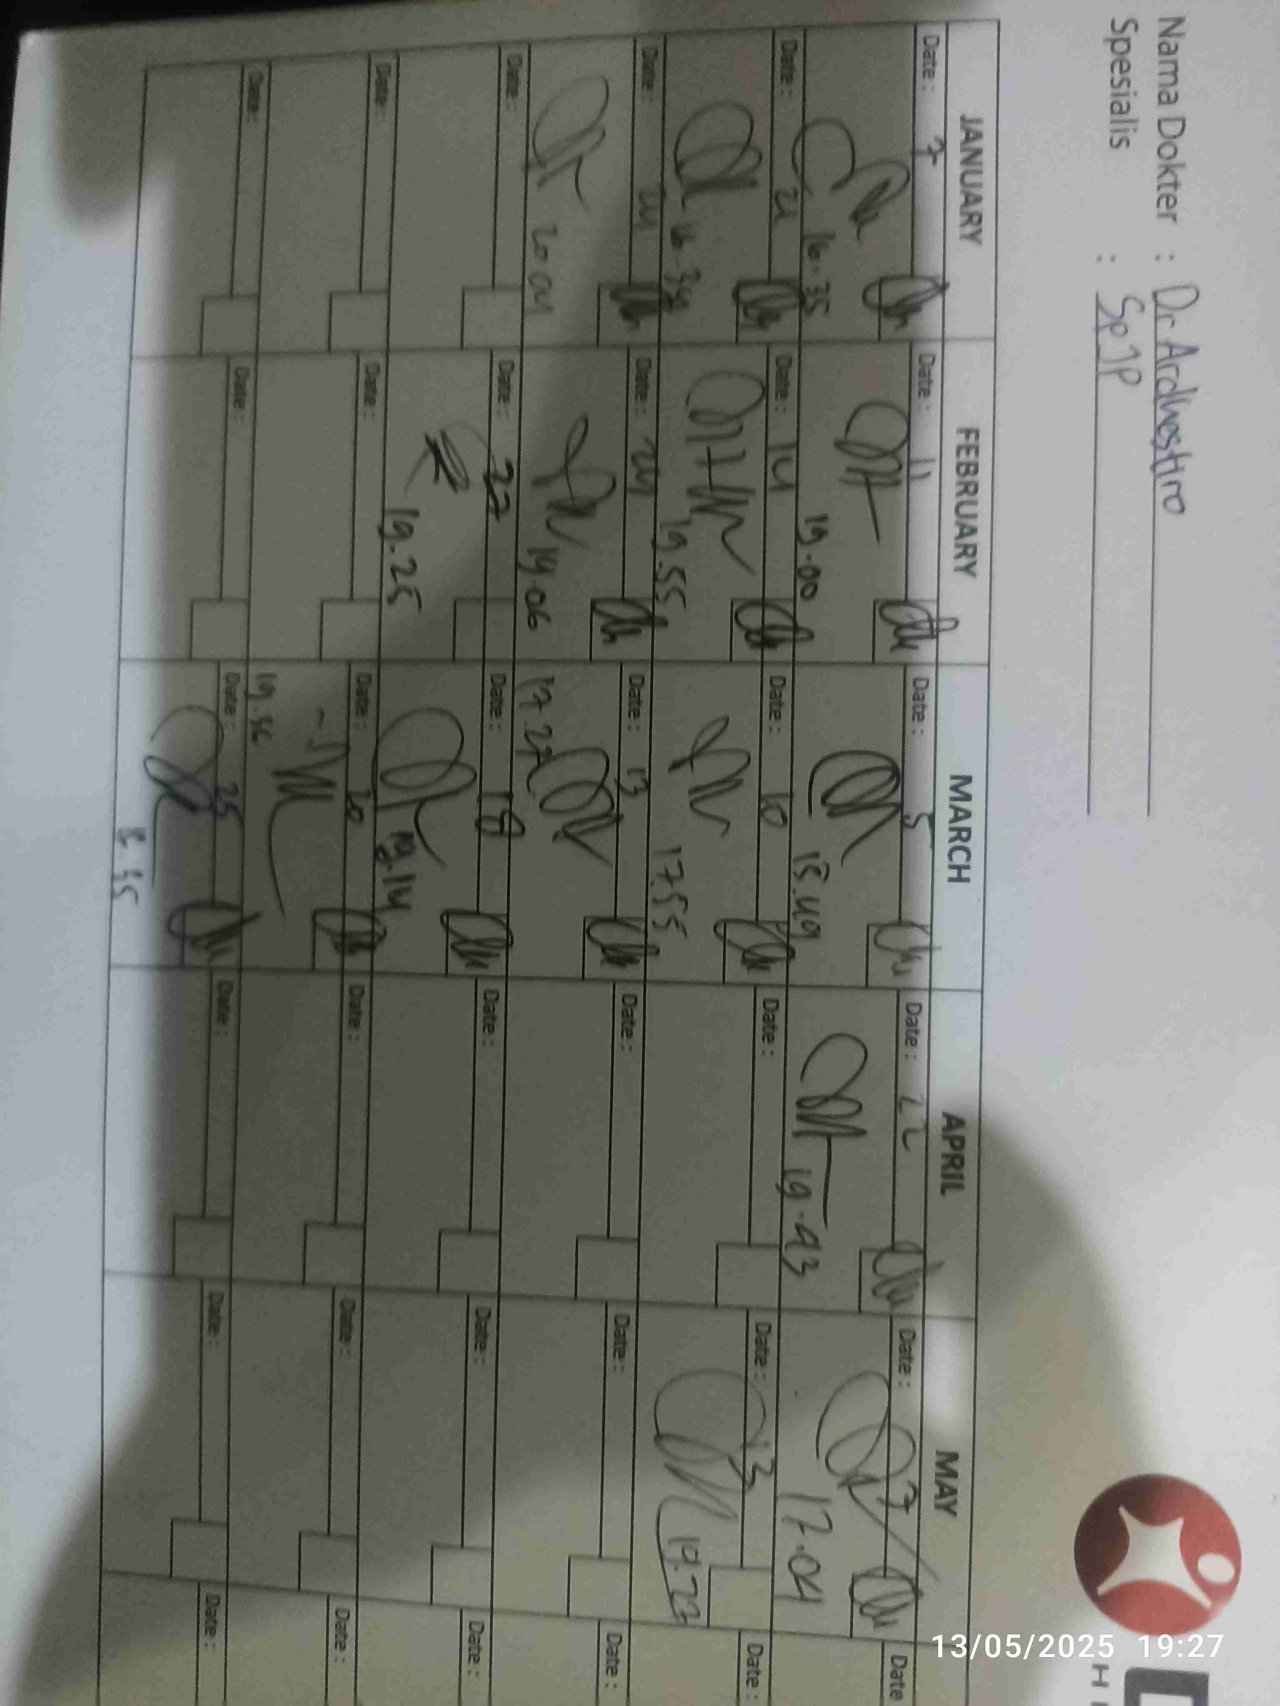 Nama Dokter : Dr Ardhestiro
Spesialis : SpJP
JANUARY FEBRUARY MARCH APRIL MAY
Date : 7 Date : 11 Date : 5 Date : 22 Date : 7 Date
16.35 19.00 15.49 19.43 17.04
Date : 21 Date : 14 Date : 10 Date : Date : 13 Date :
16.34 19.55 17.55 19.22
Date : 24 Date : 24 Date : 13 Date : Date : Date :
20.04 19.06 17.22
Date : Date : 27 Date : 18 Date : Date : Date :
19.25 19.14
Date : Date : Date : 20 Date : Date : Date :
19.36
Date : Date : Date : 25 Date : Date : Date :
13/05/2025 19:27